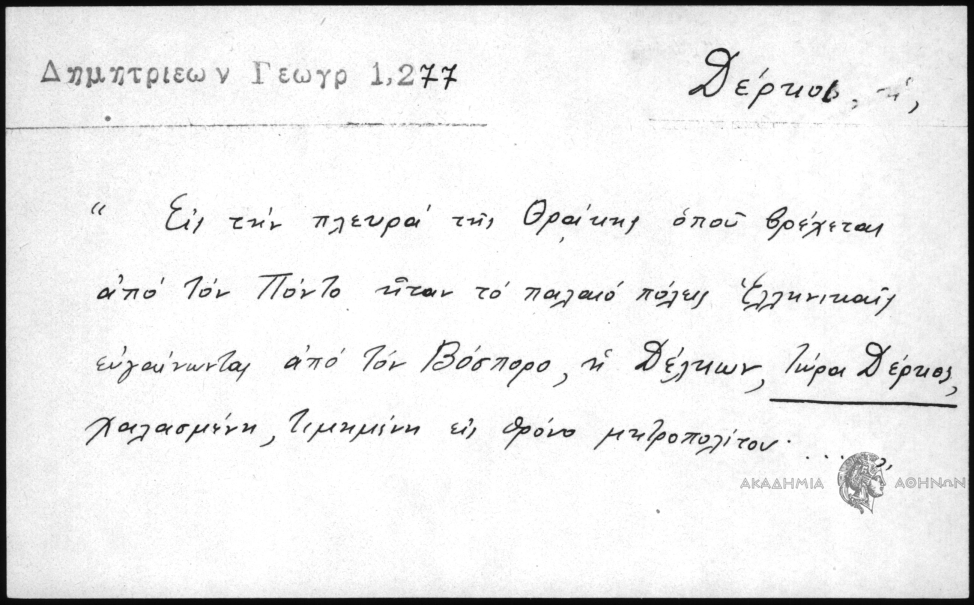 Δημητριεων Γεωγρ 1,277
Δέρκος, ἡ,
“ Εἰς τήν πλευρά τῆς Θράκης ὁποῦ βρέχεται
ἀπό τόν Πόντο ἦταν τό παλαιό πόλεις Ἑλληνικαῖς
εὐγαίνωντας ἀπό τόν Βόσπορο, ἡ Δέλκων, τώρα Δέρκος,
χαλασμένη, τιμημένη εἰς θρόνο μητροπολίτου· ....”
ΑΚΑΔΗΜΙΑ ΑΘΗΝΩΝ